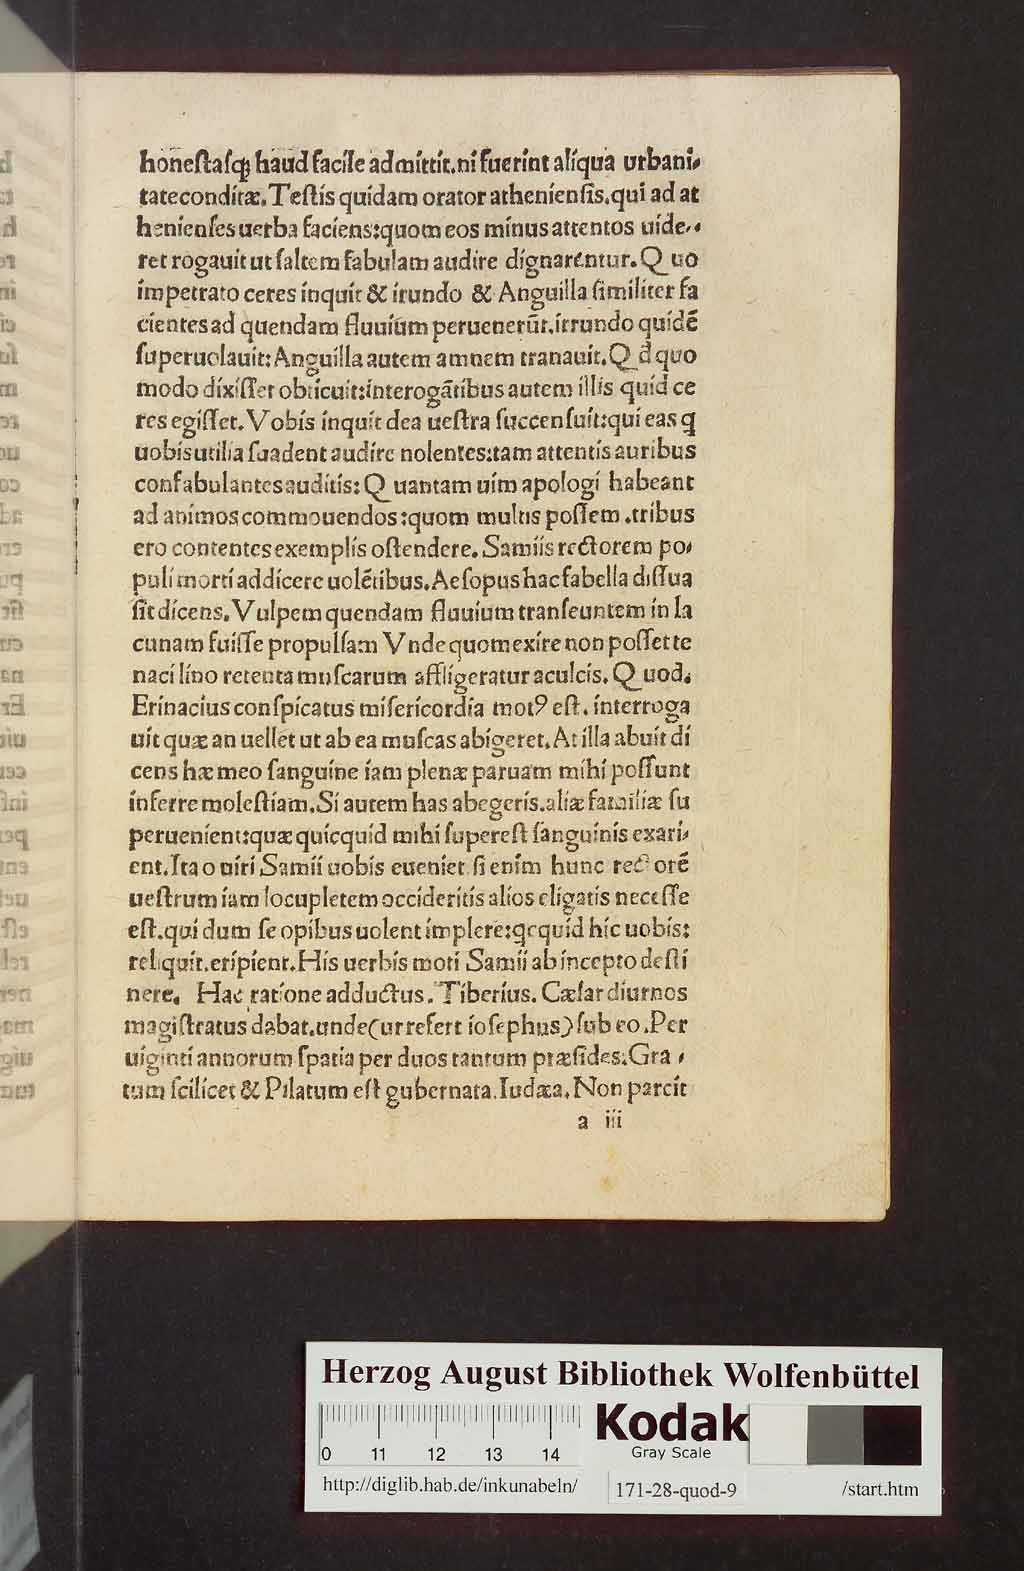 honeſtaſqꝫ haud facile admittit.ni fuerint aliqua urbani⸗
tate conditæ. Teſtis quidam orator athenienſis.qui ad at
henienſes uerba faciens:quom eos minus attentos uide⸗
ret rogauit ut ſaltem fabulam audire dignarentur. Quo
impetrato ceres inquit & irundo & Anguilla ſimiliter fa
cientes ad quendam fluuium peruenerūt.irrundo quidē
ſuperuolauit: Anguilla autem amnem tranauit. Qđ quo
modo dixiſſet obticuit:interogātibus autem illis quid ce
res egiſſet. Vobis inquit dea ueſtra ſuccenſuit:qui eas q̄
uobis utilia ſuadent audire nolentes:tam attentis auribus
confabulantes auditis: Quantam uim apologi habeant
ad animos commouendos:quom multis poſſem .tribus
ero contentes exemplis oſtendere. Samiis rectorem po⸗
puli morti addicere uolētibus. Aeſopus hac fabella diſſua
ſit dicens. Vulpem quendam fluuium tranſeuntem in la
cunam fuiſſe propulſam Vnde quom exire non poſſet te
naci lino retenta muſcarum affligeratur aculeis. Quod.
Erinacius conſpicatus miſericordia motꝰ eſt. interroga
uit quæ an uellet ut ab ea muſcas abigeret. At illa abuit di
cens hæ meo ſanguine iam plenæ paruam mihi poſſunt
inferre moleſtiam. Si autem has abegeris.aliæ familiæ ſu
peruenient:quæ quicquid mihi ſupereſt ſanguinis exari⸗
ent. Ita o uiri Samii uobis eueniet ſi enim hunc rectorē
ueſtrum iam locupletem occideritis alios eligatis neceſſe
eſt.qui dum ſe opibus uolent implere:qcquid hic uobis:
reliquit.eripient. His uerbis moti Samii ab incepto deſti
nere. Hac ratione adductus. Tiberius. Cæſar diurnos
magiſtratus dabat.unde(ut refert ioſephus)ſub eo .Per
uiginti annorum ſpatia per duos tantum præſides. Gra⸗
tum ſcilicet & Pilatum eſt gubernata. Iudæa. Non parcit
a iii
Herzog August Bibliothek Wolfenbüttel
0 11 12 13 14
Kodak
Gray Scale
http://diglib.hab.de/inkunabeln/ 171-28-quod-9 /start.htm